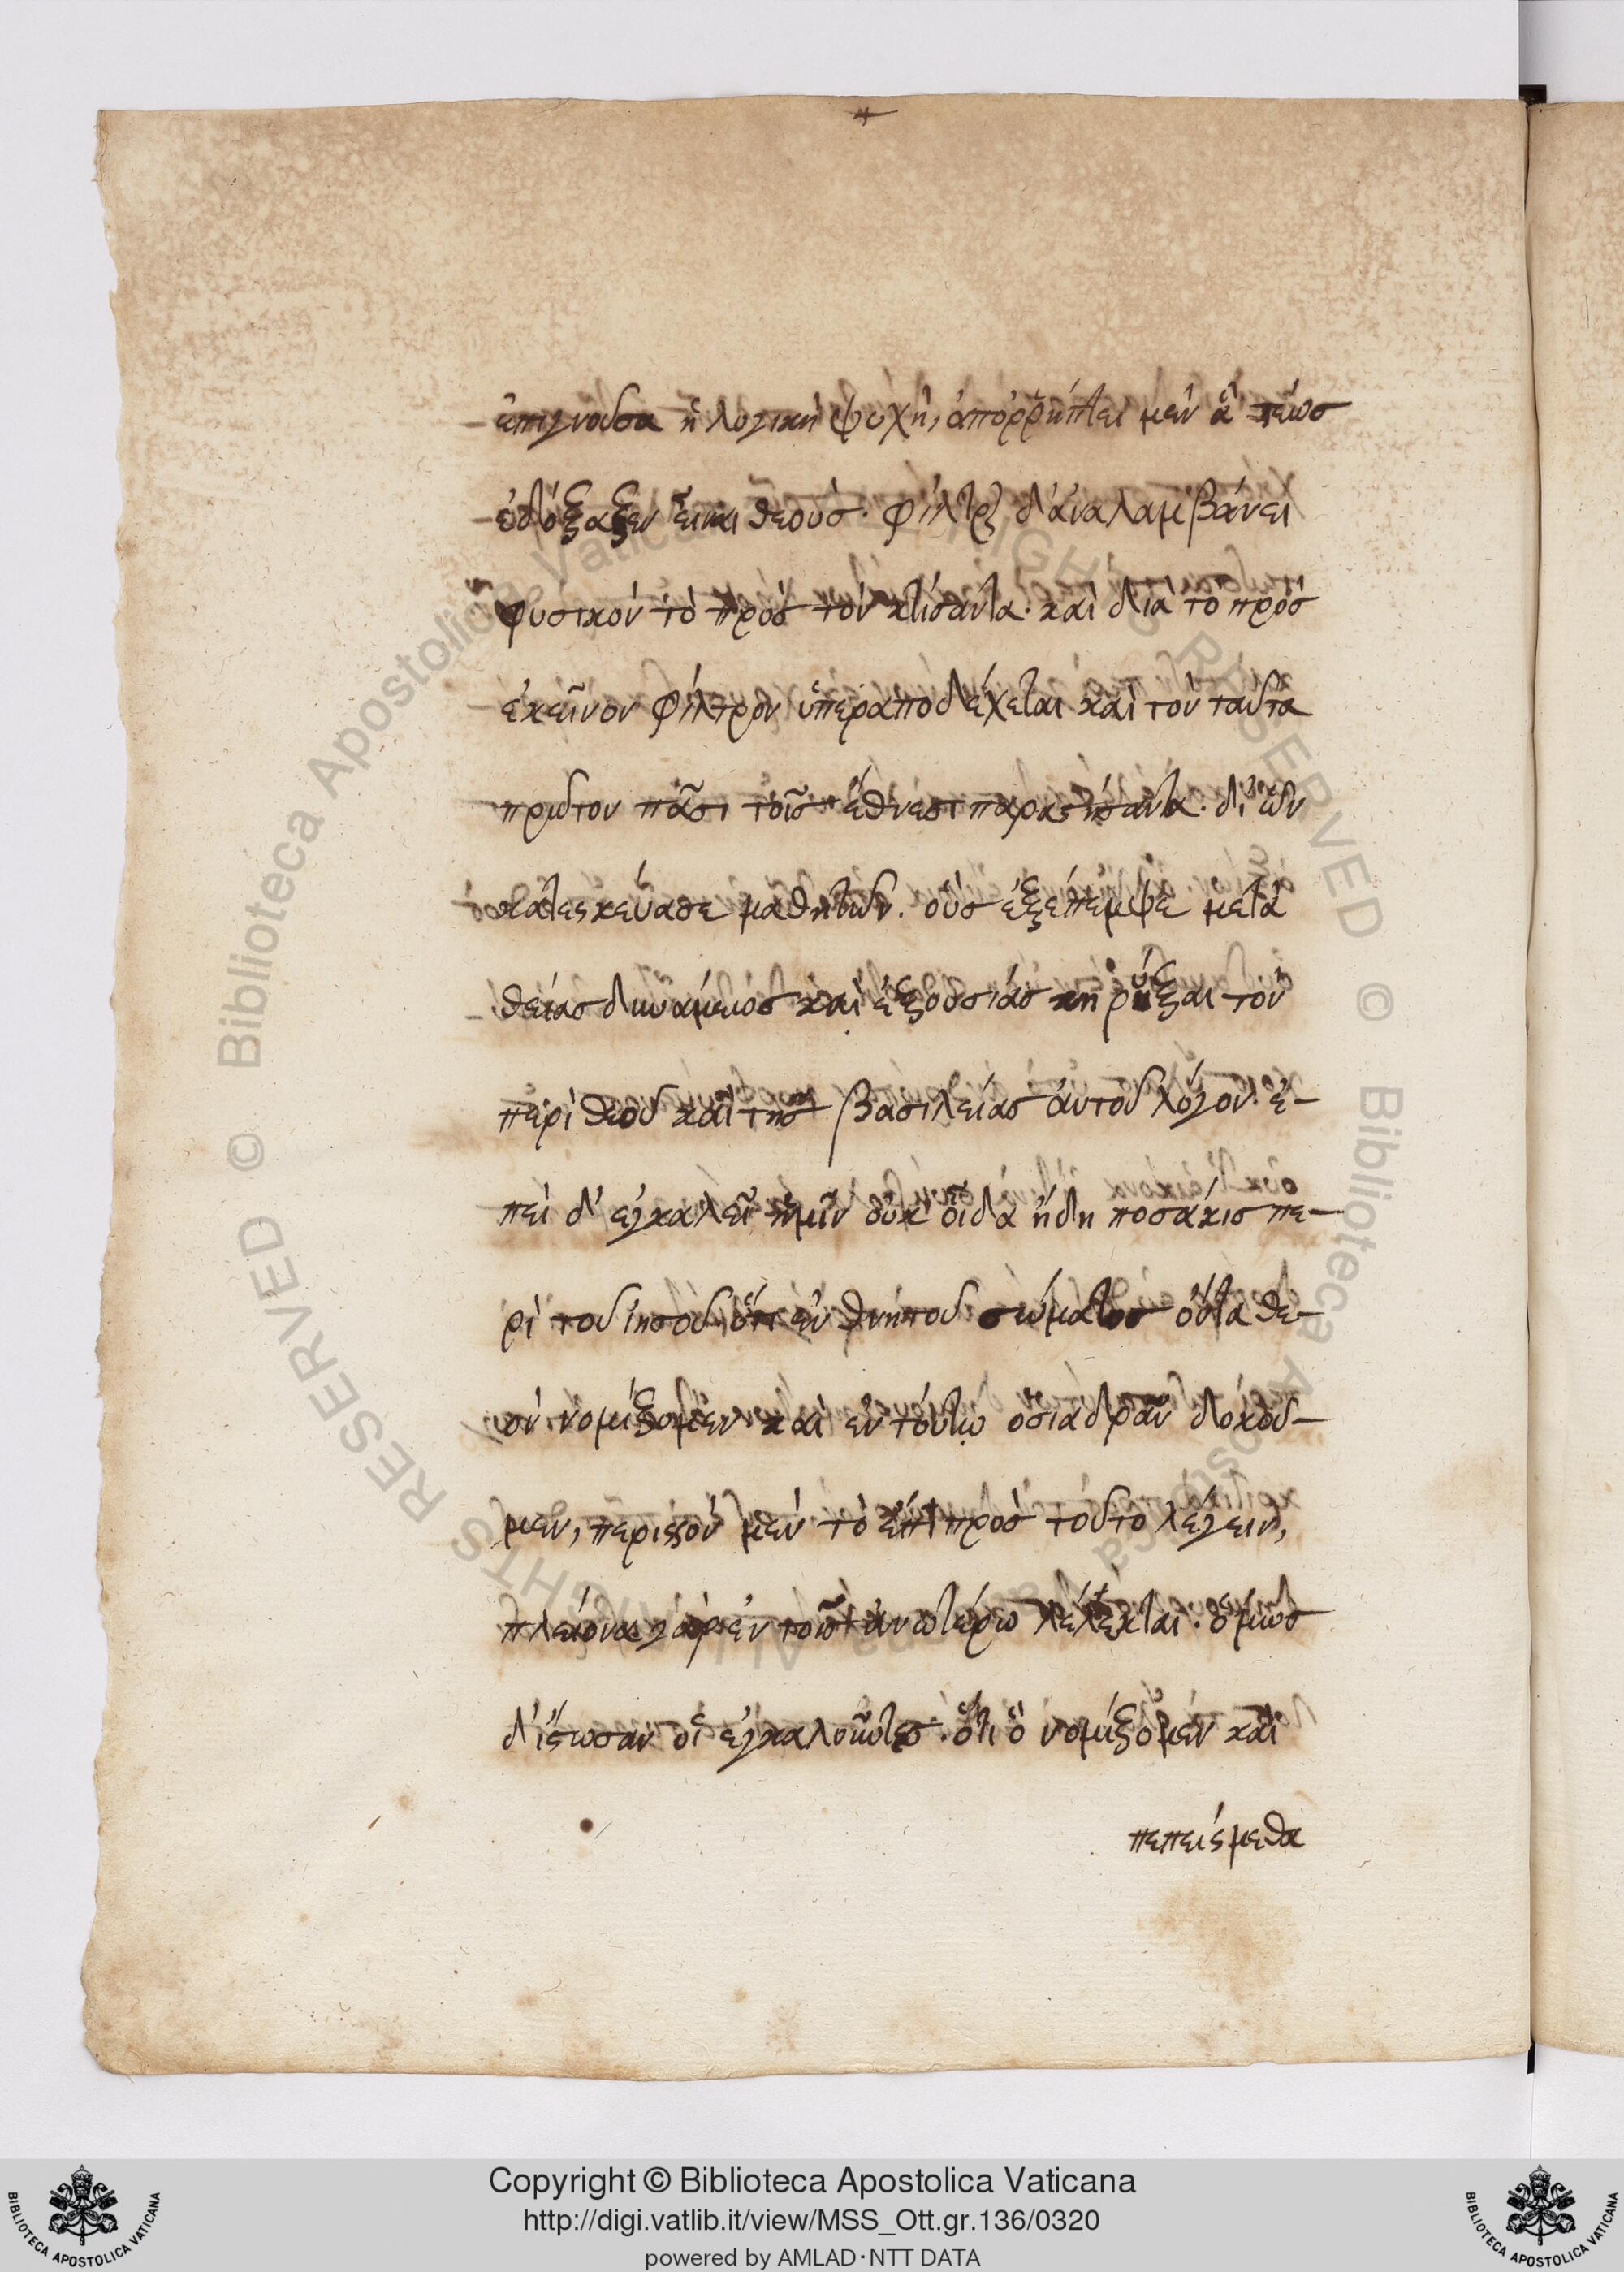 ἐπιγνοῦσα ἡ λογικὴ ψυχὴ, ἀποῤῥίπτει μὲν ἃ τέως
ἐδόξαζεν εἶναι θεούς. φίλτρον δ' ἀναλαμβάνει
φυσικὸν τὸ πρὸς τὸν κτίσαντα. καὶ διὰ τὸ πρὸς
ἐκεῖνον φίλτρον ὑπεραποδέχεται καὶ τὸν ταῦτα
πρῶτον πᾶσι τοῖς ἔθνεσι παραστήσαντα. δι' ὧν
κατεσκεύασε μαθητῶν. οὓς ἐξέπεμψε μετὰ
θείας δυνάμεως καὶ ἐξουσίας κηρύξαι τὸν
περὶ θεοῦ καὶ τῆς βασιλείας αὐτοῦ λόγον. ἐ-
πεὶ δ' ἐγκαλεῖ ἡμῖν οὐκ οἶδα ἤδη ποσάκις πε-
ρὶ τοῦ ἰησοῦ ὅτι ἐν θνητοῦ σώματος ὄντα θε-
ὸν νομίζομεν καὶ ἐν τούτῳ ὅσια δρᾶν δοκοῦ-
μεν, περισσὸν μὲν τὸ ἔτι πρὸς τοῦτο λέγειν,
πλείονα γὰρ ἐν τοῖς ἀνωτέρω λέλεκται. ὅμως
δ' ἴστωσαν οἱ ἐγκαλοῦντες. ὅτι ὃ νομίζομεν καὶ
πεπείσμεθα
Copyright © Biblioteca Apostolica Vaticana
http://digi.vatlib.it/view/MSS_Ott.gr.136/0320
powered by AMLAD·NTT DATA